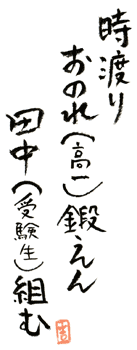 時渡り
おのれ(高一)鍛えん
田中(受験生)組む